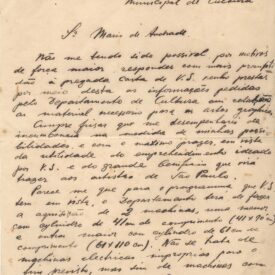 Municipal de Cultura
Sr. Mario de Andrade.
Não me tendo sido possivel por motivos
de força maior responder com mais prompti-
dão à prezada carta de V.S. venho prestar
por meio desta as informações pedidas
pelo Departamento de Cultura em relação
ao material necessario para as artes graphicas.
Cumpre-me que me desempenharia da
incumbencia na medida de minhas possi-
bilidades e com o maximo prazer, em vista
da utilidade do emprehendimento
por V.S. e do grande beneficio que
trazer aos artistas de São Paulo.
Parece me que para o programma que V.S.
tem em vista, o Departamento terá de fazer
a aquisição de 2 machinas, uma menor
com cylindro de 47cm de comprimento (47 x 90 cm)
e outra maior com cylindro de 61 cm de
comprimento (61 x 110 cm). Não se trata de
machinas electricas improprias para o
fim previsto, mas sim de machinas com